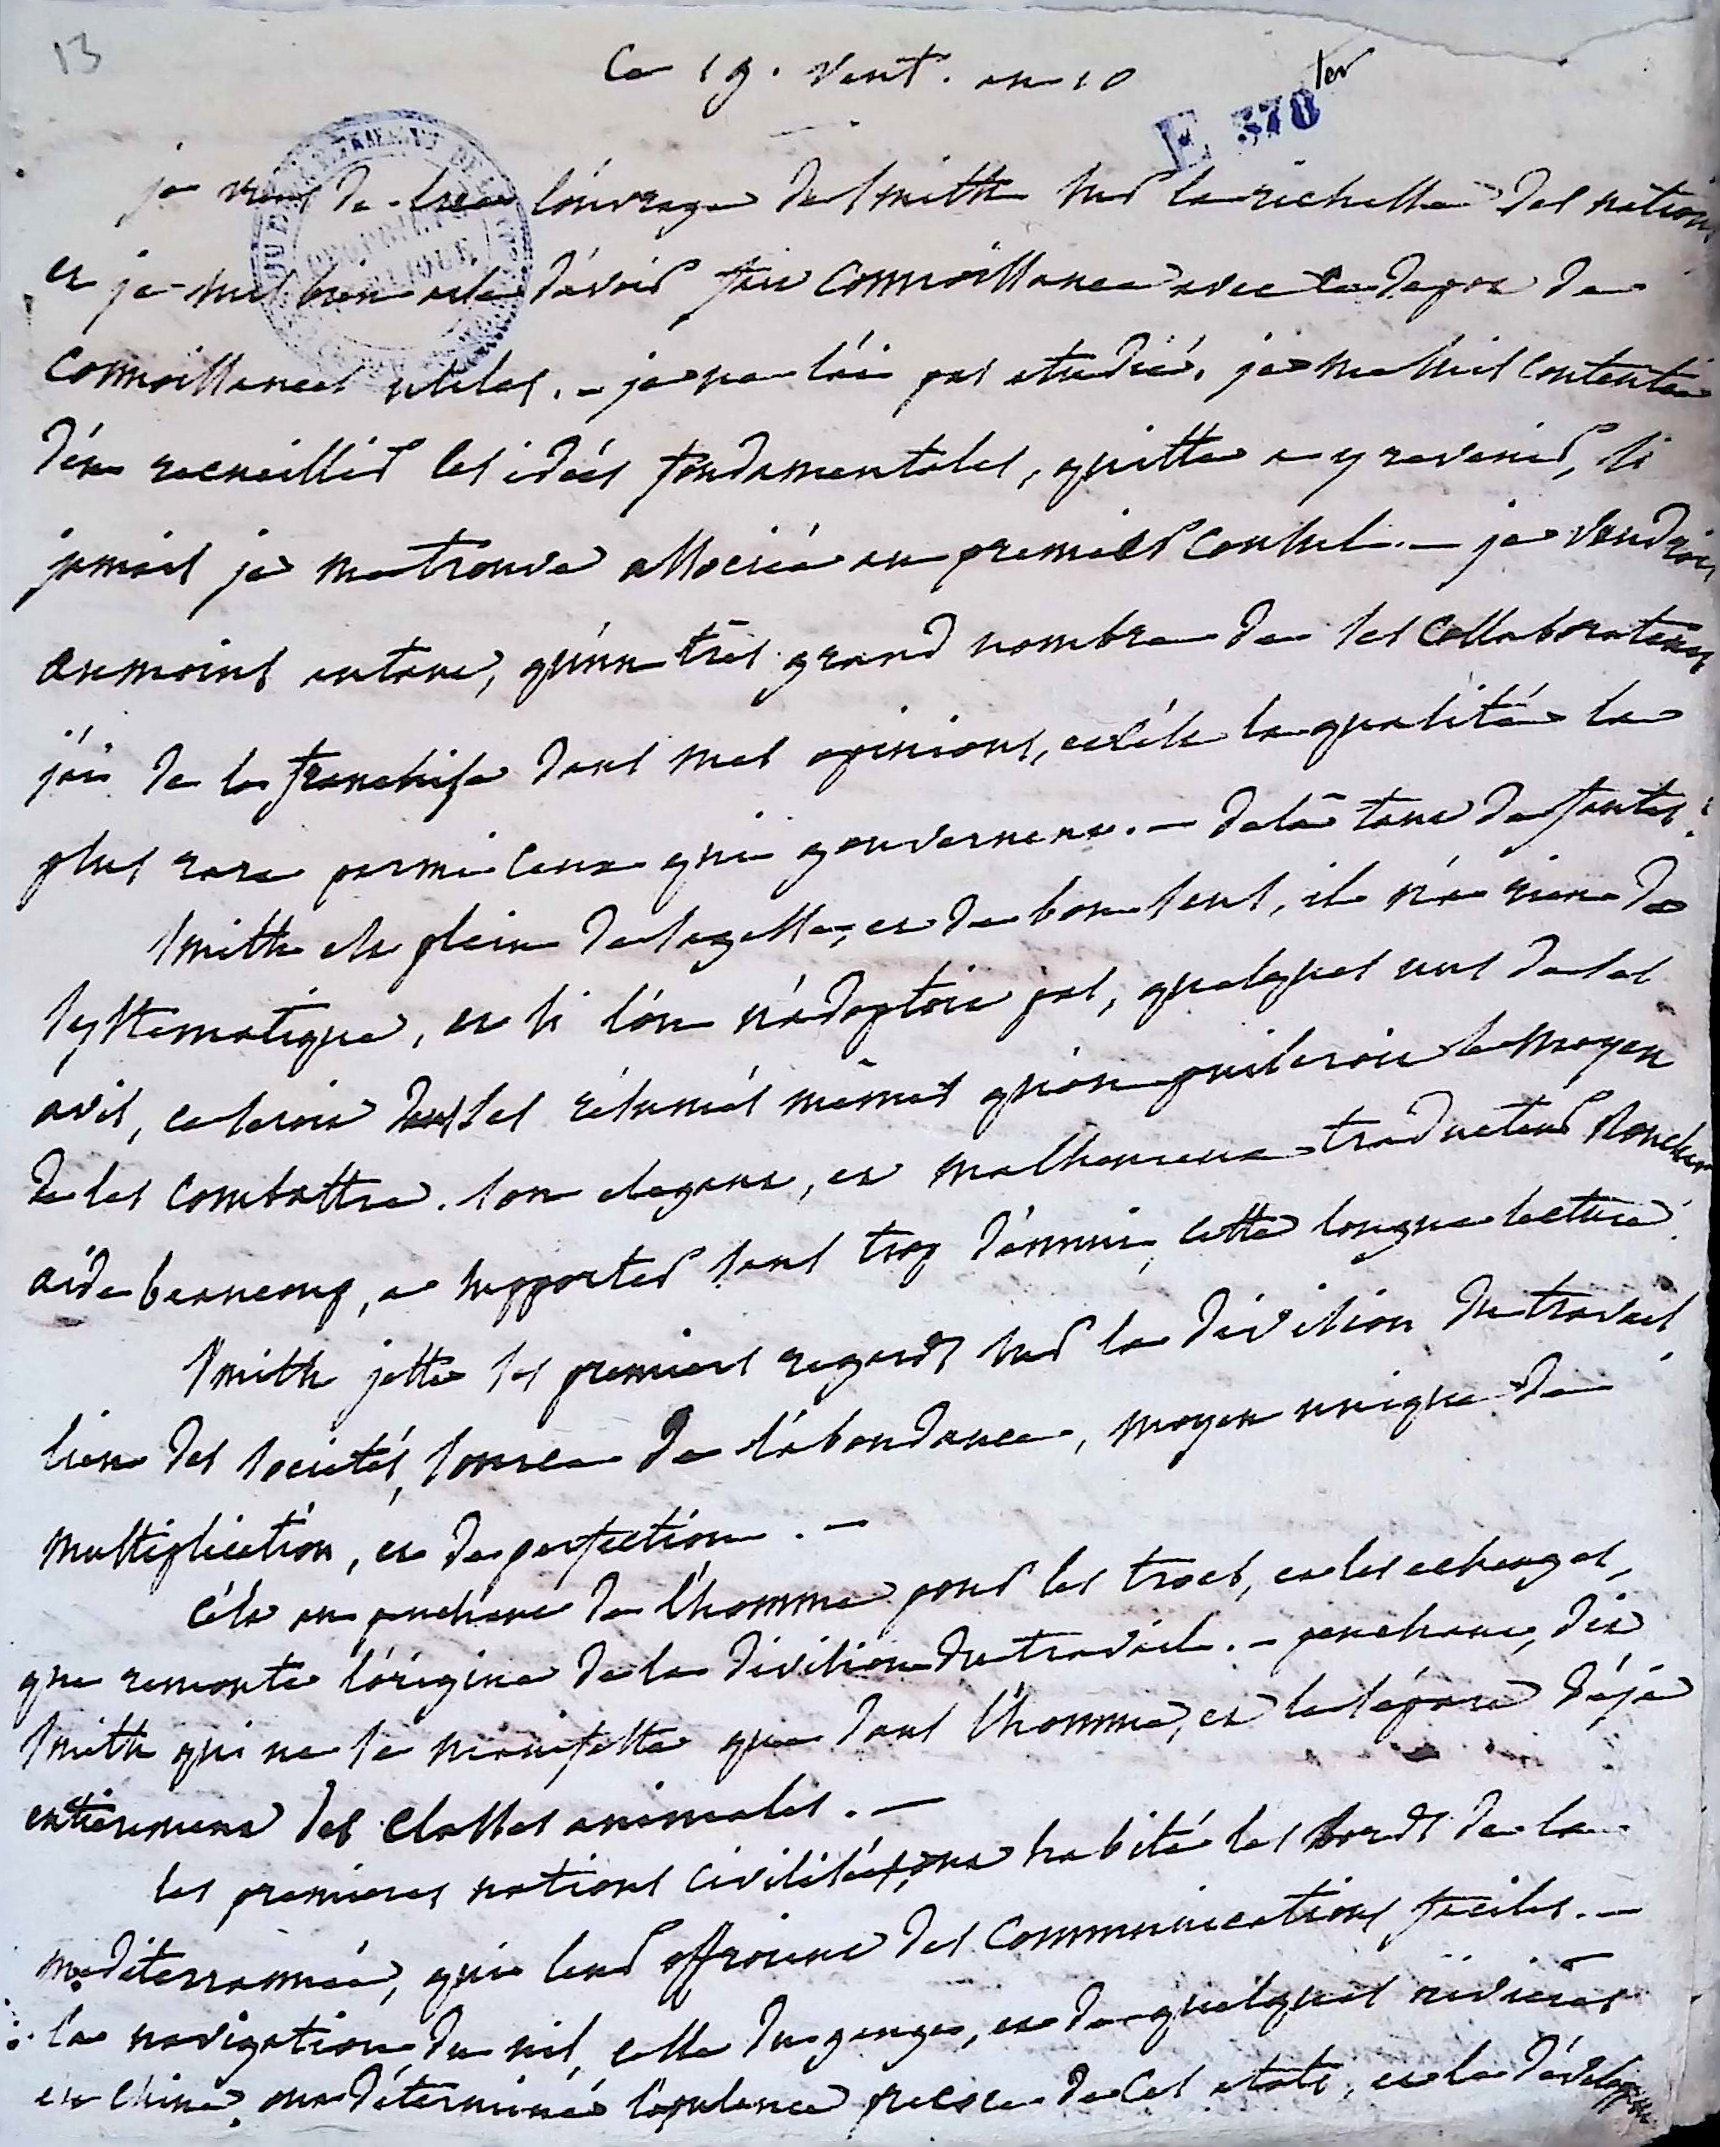 13
Ce 19. vent. an 10
ter
E 370
je viens de lire l'ouvrage de Smith sur la richesse des nations
et je suis bien aise d'avoir fait connoissance avec ce depot de
connoissances utiles. - je ne l'ai pas etudié, je me suis contentée
d'en recueillir les idées fondamentales, quitte a y revenir, si
jamais je me trouve associée au premier consul. - je voudrois
aumoins autant, qu'un très grand nombre de ses collaborateurs
j'ai de la franchise dans mes opinions, et c'est la qualité la
plus rare parmi ceux qui gouvernent. - delà tant de fautes.
Smith est plein de sagesse, et de bon sens, il n'a rien de
systematique, et si l'on n'adoptoit pas, quelques uns de ses
avis, ce seroit dans ses résumés mêmes qu'on puiseroit le moyen
de les combattre. son elegant, et malheureux traducteur Roucher
aide beaucoup, a supporter sans trop d'ennui, cette longue lecture.
Smith jette ses premiers regards sur la division du travail,
lien des societés, source de l'abondance, moyen unique de
multiplication, et de perfection. -
C'est au penchant de l'homme pour les trocs, et les echanges,
que remonte l'origine de la division du travail. - penchant, dit
Smith qui ne se manifeste que dans l'homme, et le sépare déjà
entièrement des classes animales. -
les premieres nations civilisées, ont habité les bords de la
mediterrannée, qui leur offroient des communications faciles. -
la navigation du nil, celle du gange, et de quelques rivières
en Chine, ont déterminé l'opulence precoce de ces etats, et le